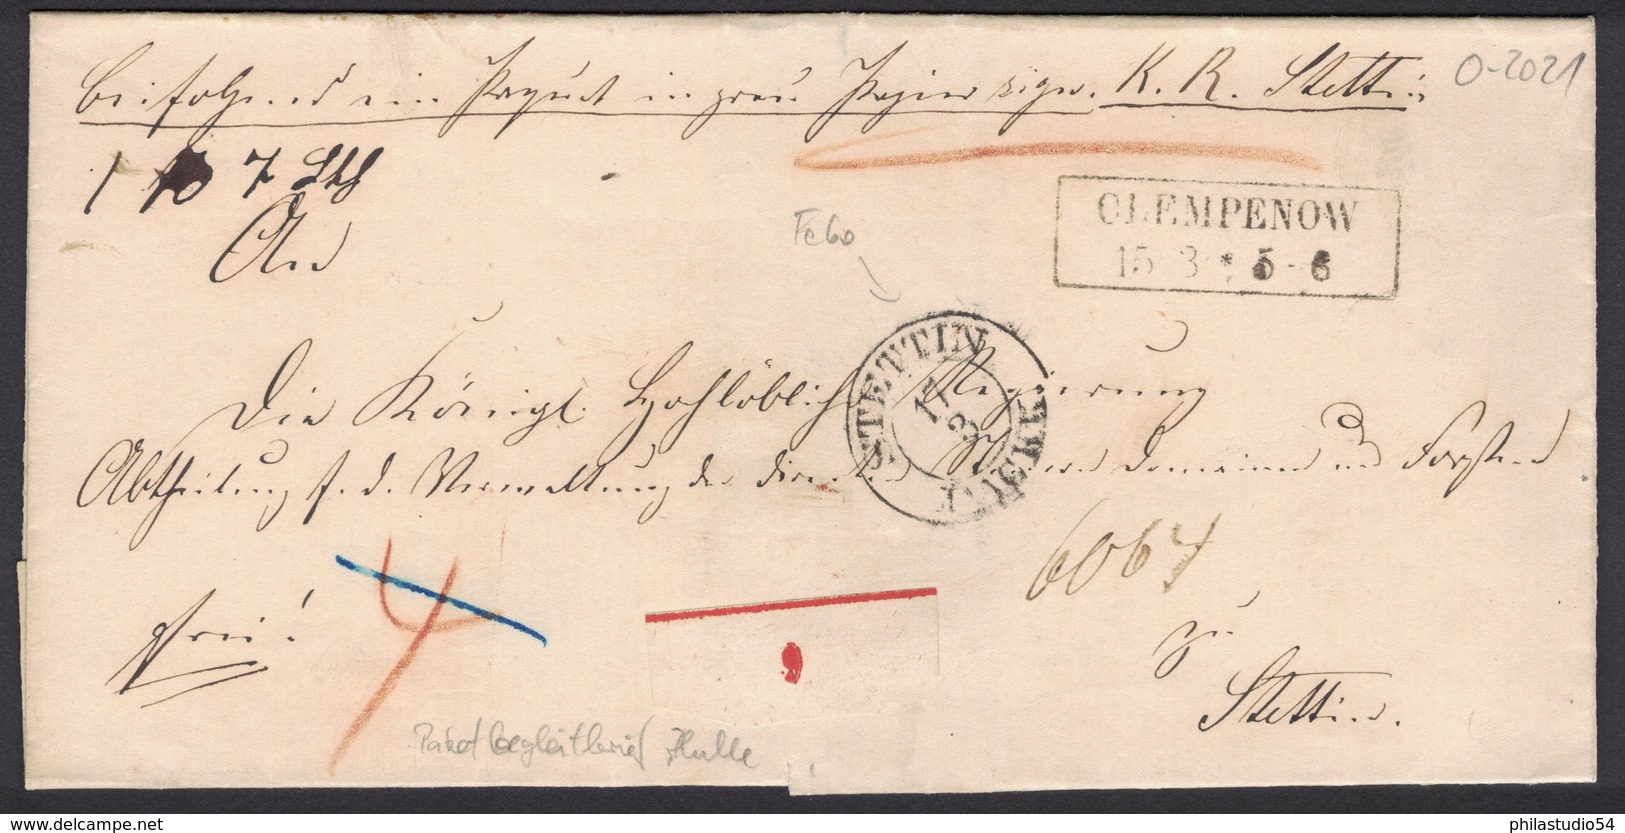 Beifolgend ein Paquet in grau Papier sign. K. R. Stettin
O-2021
1 7 Lth
An
CLEMPENOW
15 3 * 5-6
Fe60
STETTIN
17
3
Die Königl. Hochlöbliche Regierung
Abtheilung f. d. Verwaltung der direkten Steuern Domainen und Forsten
6064
4
frei!
zu
Stettin.
9
Paketbegleitbrief Hülle
www.delcampe.net
philastudio54